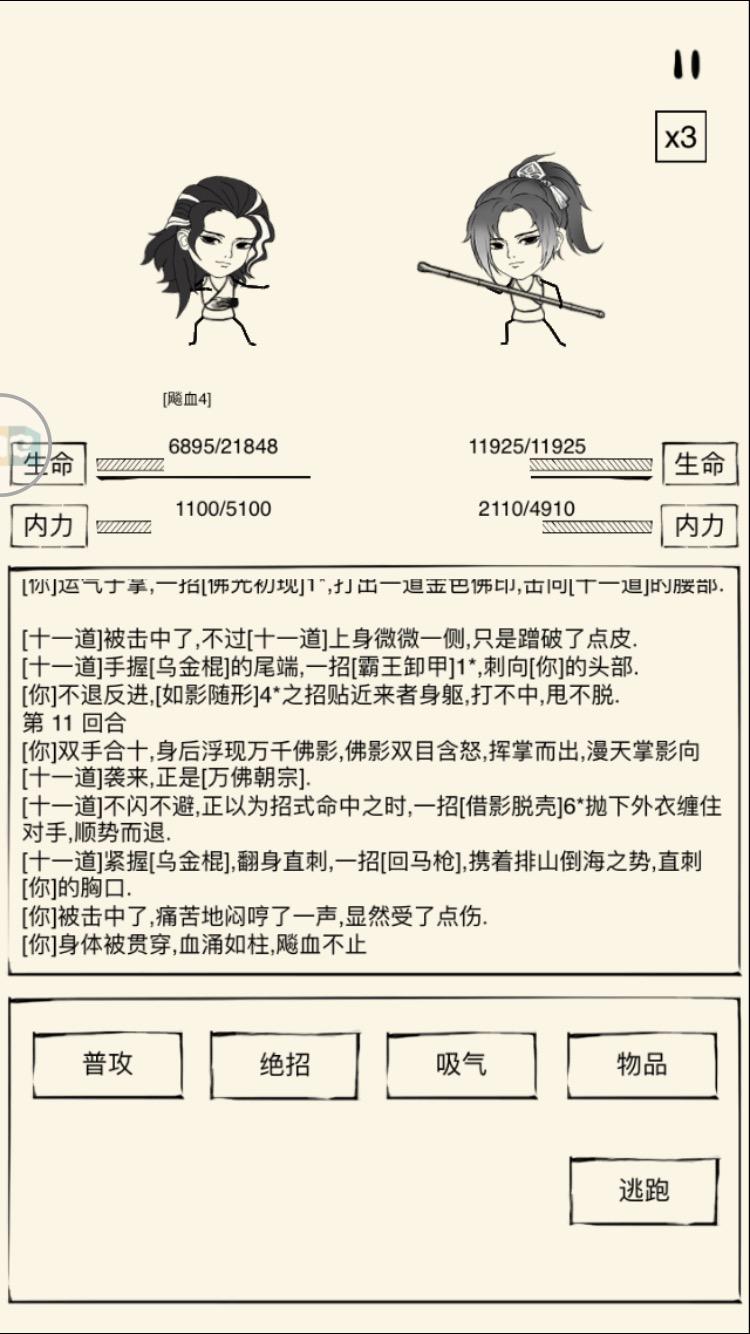 x3
[飚血4]
生命
6895/21848
11925/11925
生命
内力
1100/5100
2110/4910
内力
[你]运气于掌,一招[佛光初现]1*,打出一道金色佛印,击向[十一道]的腰部.
[十一道]被击中了,不过[十一道]上身微微一侧,只是蹭破了点皮.
[十一道]手握[乌金棍]的尾端,一招[霸王卸甲]1*,刺向[你]的头部.
[你]不退反进,[如影随形]4*之招贴近来者身躯,打不中,甩不脱.
第 11 回合
[你]双手合十,身后浮现万千佛影,佛影双目含怒,挥掌而出,漫天掌影向
[十一道]袭来,正是[万佛朝宗].
[十一道]不闪不避,正以为招式命中之时,一招[借影脱壳]6*抛下外衣缠住
对手,顺势而退.
[十一道]紧握[乌金棍],翻身直刺,一招[回马枪],携着排山倒海之势,直刺
[你]的胸口.
[你]被击中了,痛苦地闷哼了一声,显然受了点伤.
[你]身体被贯穿,血涌如柱,飚血不止
普攻
绝招
吸气
物品
逃跑